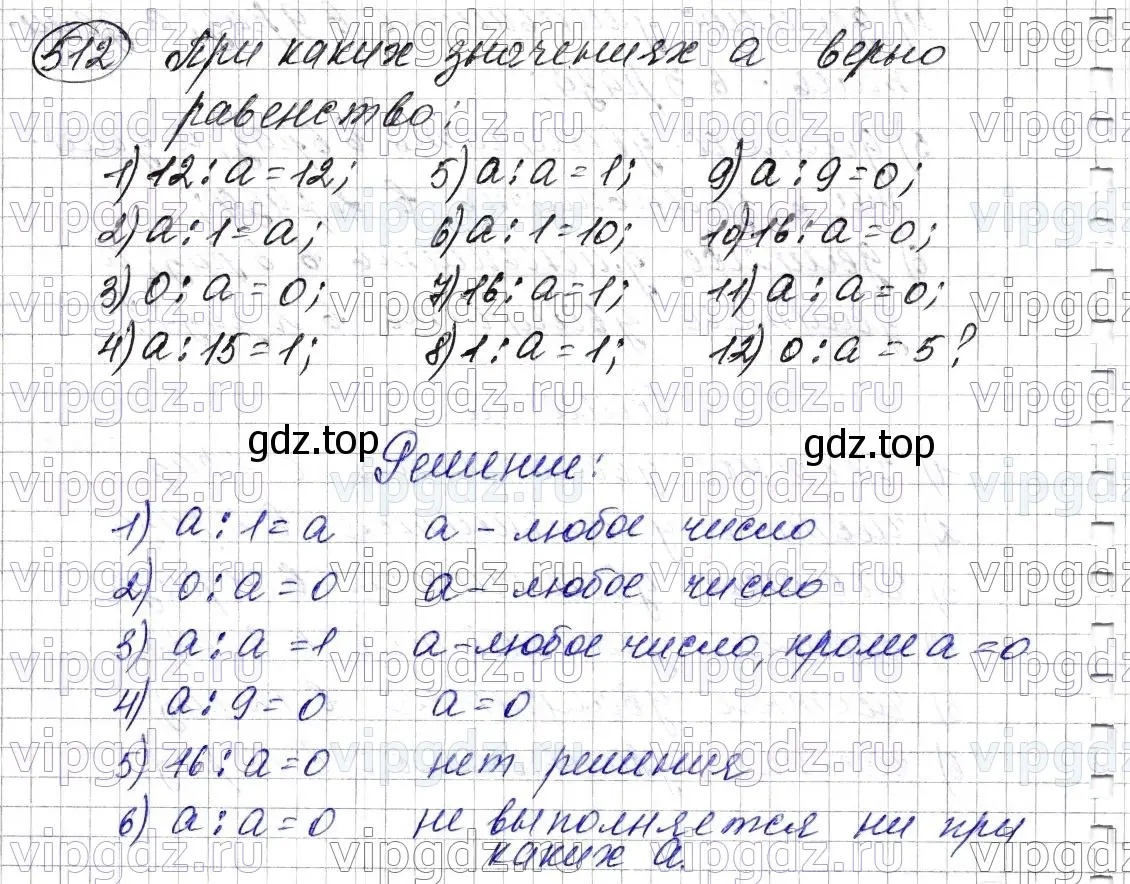 512 При каких значениях a верно
равенство:
1) 12 : a = 12; 5) a : a = 1; 9) a : 9 = 0;
2) a : 1 = a; 6) a : 1 = 10; 10) 16 : a = 0;
3) 0 : a = 0; 7) 16 : a = 1; 11) a : a = 0;
4) a : 15 = 1; 8) 1 : a = 1; 12) 0 : a = 5?
gdz.top gdz.top
Решение:
1) a : 1 = a a - любое число
2) 0 : a = 0 a - любое число
3) a : a = 1 a - любое число, кроме a = 0
4) a : 9 = 0 a = 0
5) 16 : a = 0 нет решения
6) a : a = 0 не выполняется ни при
каких a.
vipgdz.ru